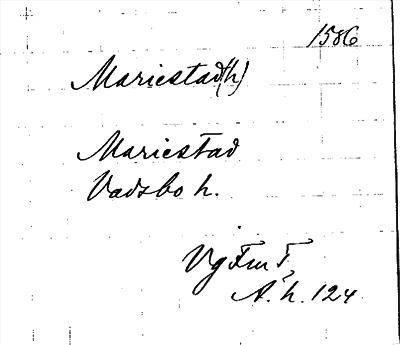 1586
Mariestad(h)
Mariestad
Vadsbo h.
Vg Fm T,
A. h. 124